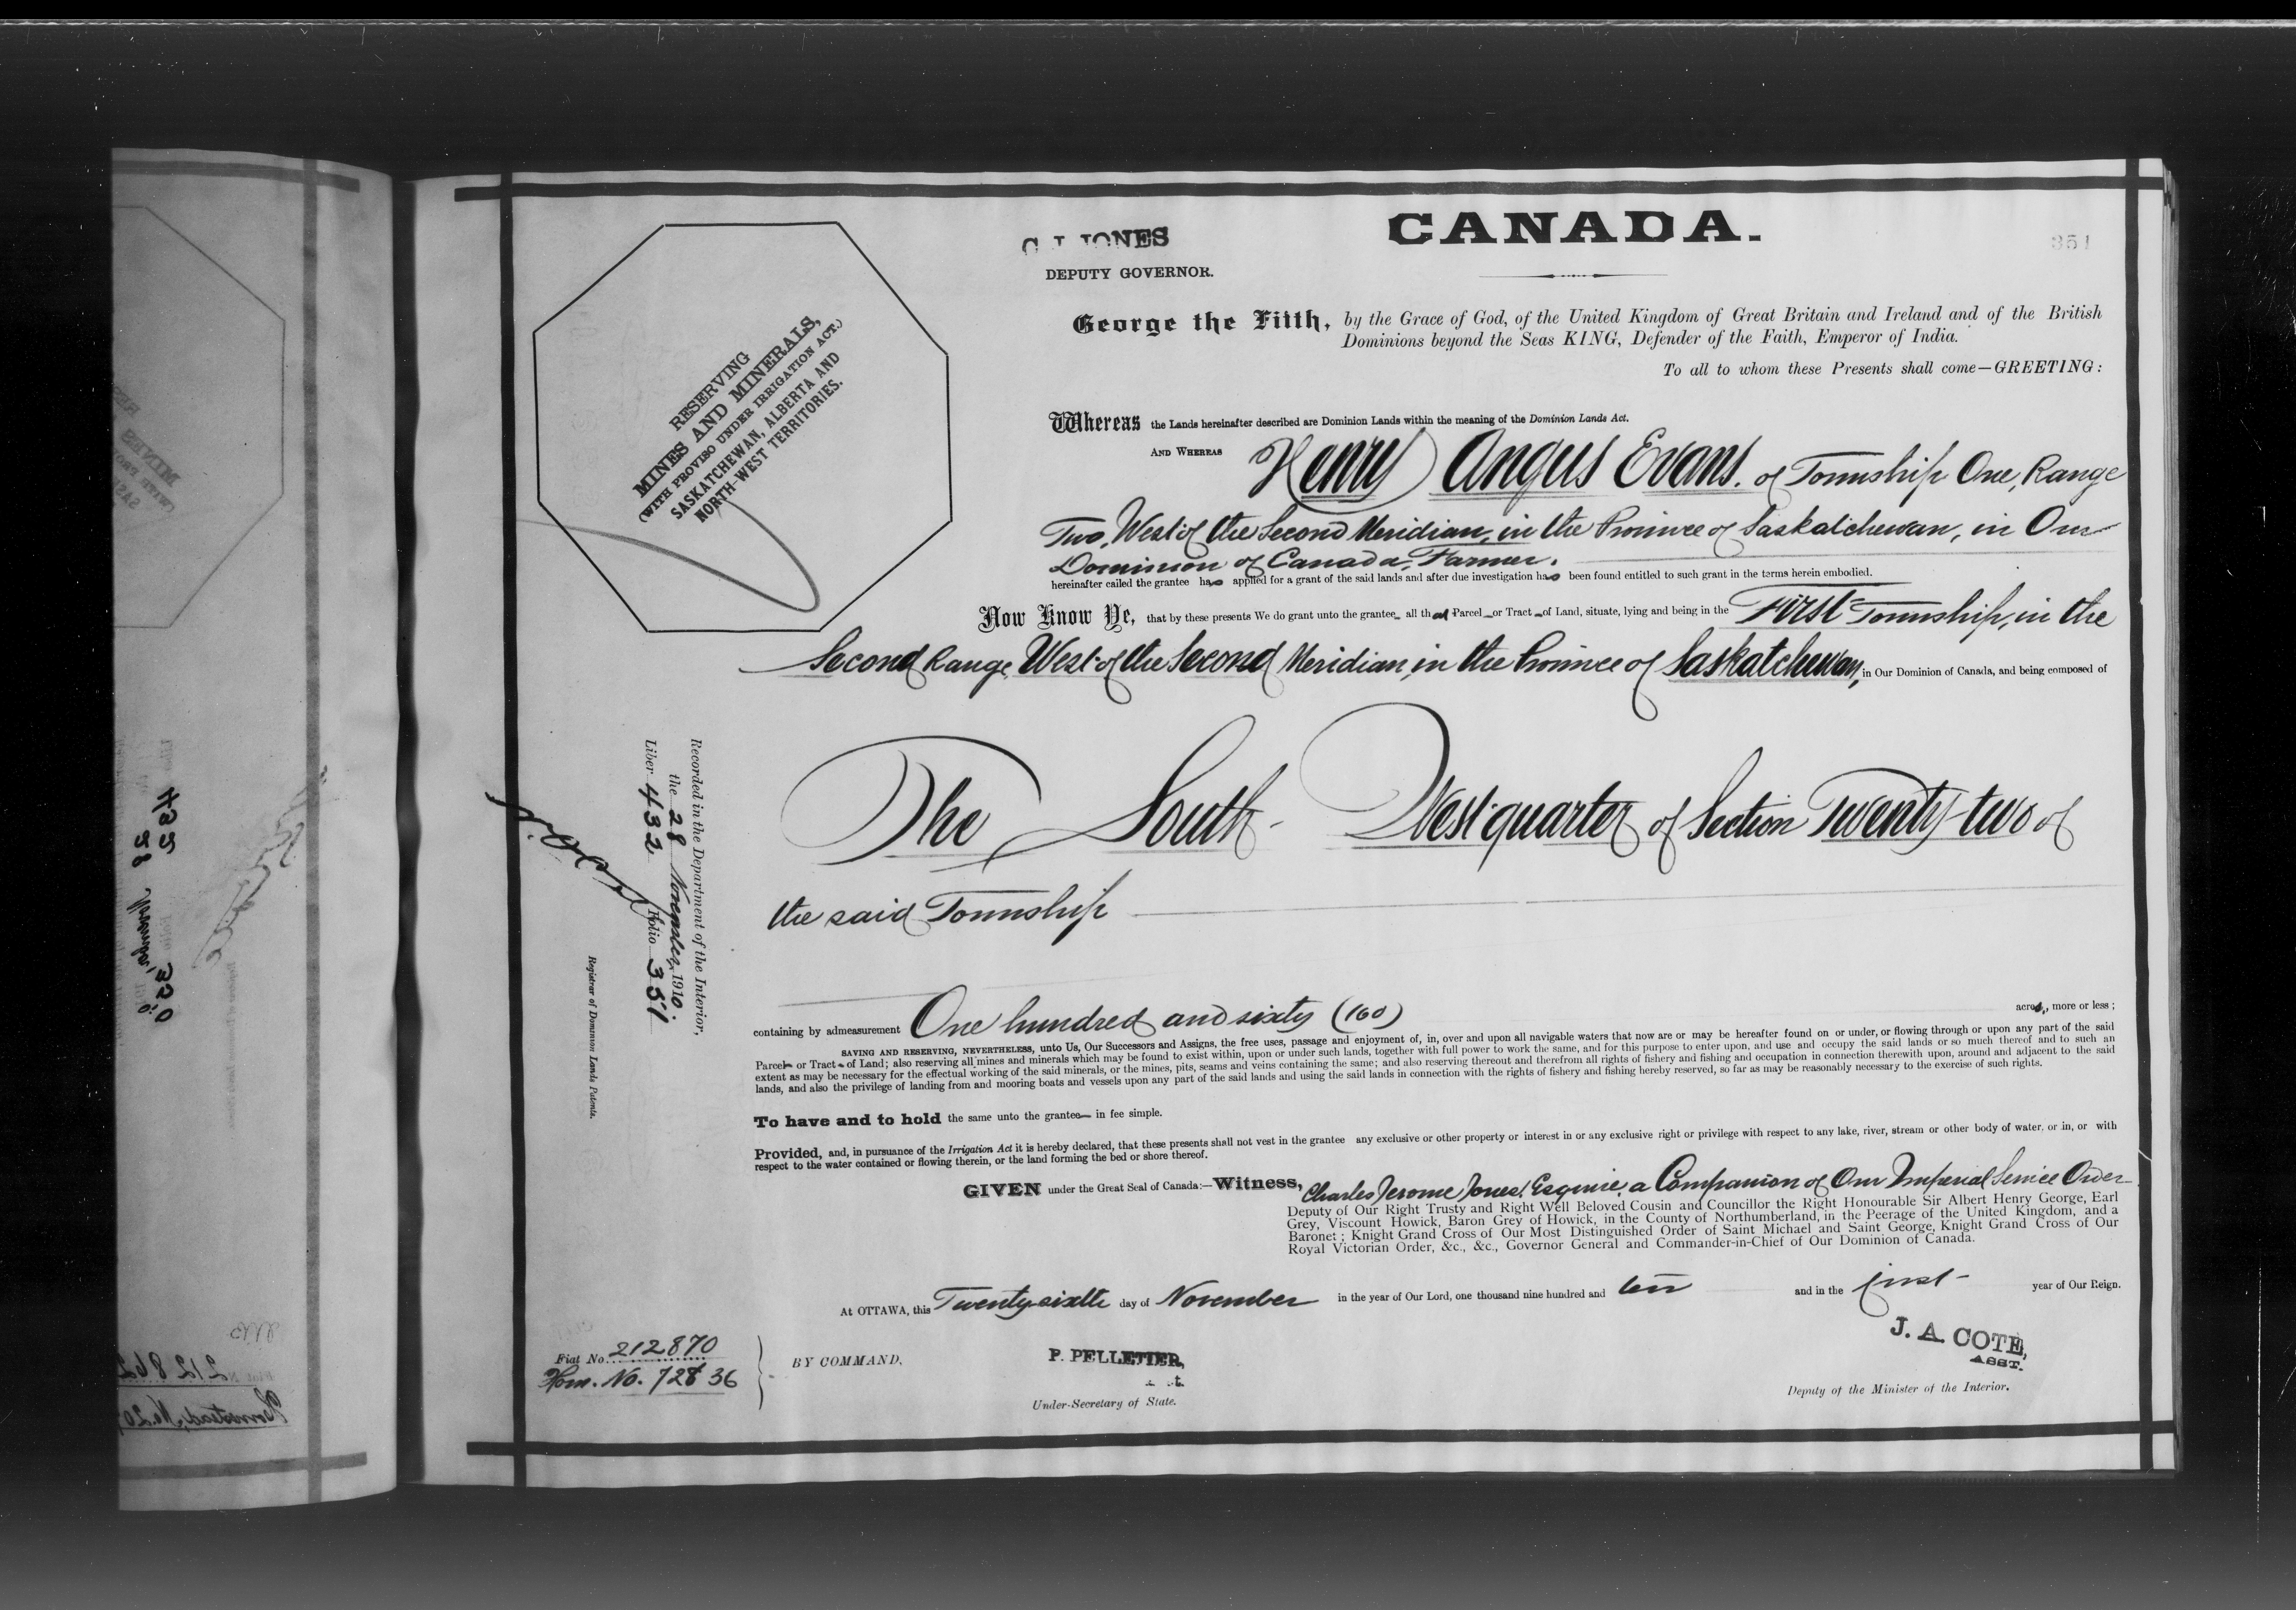 CANADA.
C. J. JONES
351
DEPUTY GOVERNOR.
George the Fifth, by the Grace of God, of the United Kingdom of Great Britain and Ireland and of the British
Dominions beyond the Seas KING, Defender of the Faith, Emperor of India.
To all to whom these Presents shall come—GREETING:
RESERVING
MINES AND MINERALS,
(WITH PROVISO UNDER IRRIGATION ACT.)
SASKATCHEWAN, ALBERTA AND
NORTH-WEST TERRITORIES.
Whereas the Lands hereinafter described are Dominion Lands within the meaning of the Dominion Lands Act.
AND WHEREAS Henry Angus Evans. of Township One, Range
Two, West of the Second Meridian, in the Province of Saskatchewan, in Our
Dominion of Canada, Farmer.
hereinafter called the grantee has applied for a grant of the said lands and after due investigation has been found entitled to such grant in the terms herein embodied.
Now Know Ye, that by these presents We do grant unto the grantee all that Parcel or Tract of Land, situate, lying and being in the First Township, in the
Second Range, West of the Second Meridian, in the Province of Saskatchewan, in Our Dominion of Canada, and being composed of
The South-West quarter of Section Twenty-two of
the said Township
Recorded in the Department of the Interior,
the 28 November, 1910.
Liber 432 Folio 351
Registrar of Dominion Lands Patents.
containing by admeasurement One hundred and sixty (160) acres, more or less;
SAVING AND RESERVING, NEVERTHELESS, unto Us, Our Successors and Assigns, the free uses, passage and enjoyment of, in, over and upon all navigable waters that now are or may be hereafter found on or under, or flowing through or upon any part of the said
Parcel or Tract of Land; also reserving all mines and minerals which may be found to exist within, upon or under such lands, together with full power to work the same, and for this purpose to enter upon, and use and occupy the said lands or so much thereof and to such an
extent as may be necessary for the effectual working of the said minerals, or the mines, pits, seams and veins containing the same; and also reserving thereout and therefrom all rights of fishery and fishing and occupation in connection therewith upon, around and adjacent to the said
lands, and also the privilege of landing from and mooring boats and vessels upon any part of the said lands and using the said lands in connection with the rights of fishery and fishing hereby reserved, so far as may be reasonably necessary to the exercise of such rights.
To have and to hold the same unto the grantee in fee simple.
Provided, and, in pursuance of the Irrigation Act it is hereby declared, that these presents shall not vest in the grantee any exclusive or other property or interest in or any exclusive right or privilege with respect to any lake, river, stream or other body of water, or in, or with
respect to the water contained or flowing therein, or the land forming the bed or shore thereof.
GIVEN under the Great Seal of Canada:—Witness, Charles Jerome Jones, Esquire, a Companion of Our Imperial Service Order
Deputy of Our Right Trusty and Right Well Beloved Cousin and Councillor the Right Honourable Sir Albert Henry George, Earl
Grey, Viscount Howick, Baron Grey of Howick, in the County of Northumberland, in the Peerage of the United Kingdom, and a
Baronet; Knight Grand Cross of Our Most Distinguished Order of Saint Michael and Saint George, Knight Grand Cross of Our
Royal Victorian Order, &c., &c., Governor General and Commander-in-Chief of Our Dominion of Canada.
At OTTAWA, this Twenty-sixth day of November in the year of Our Lord, one thousand nine hundred and ten and in the first year of Our Reign.
Fiat No. 212870
Hom. No. 72836
BY COMMAND,
P. PELLETIER,
Under-Secretary of State.
J. A. COTE,
ASST.
Deputy of the Minister of the Interior.